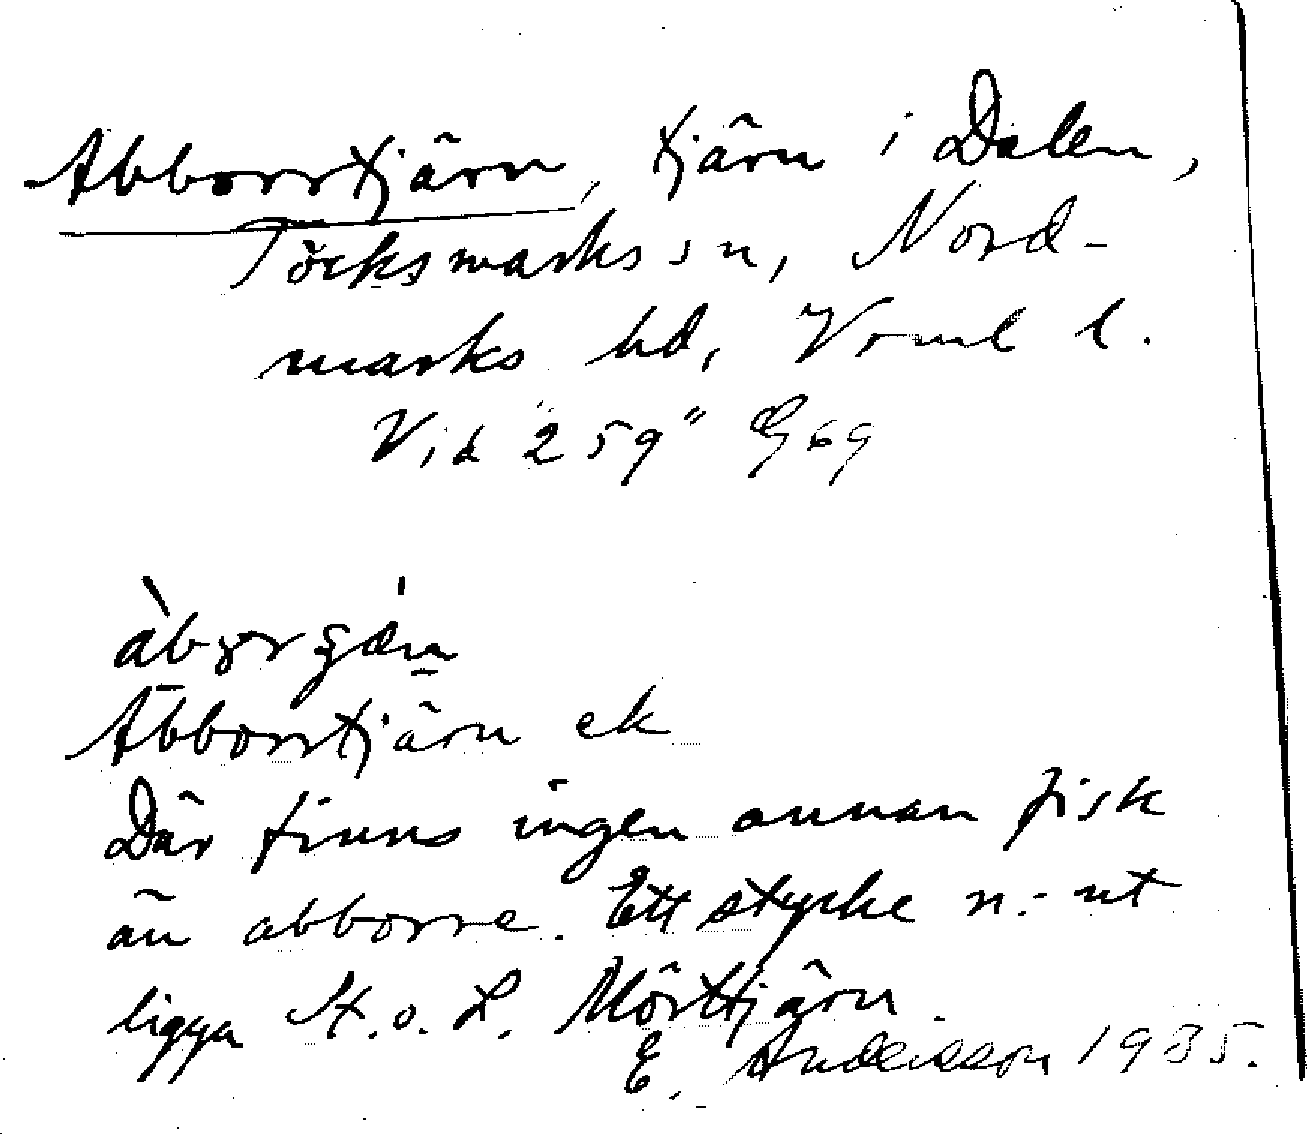 Abborrtjärn, tjärn i Dalen,
Töcksmarks sn, Nord-
marks hd, Vrml l.
Vid "259" G69
Abborrtjärn ek
Där finns ingen annan fisk
än abborre. Ett stycke n.- ut
ligga St. o. L. Mörttjärn.
E. Andersson 1935.